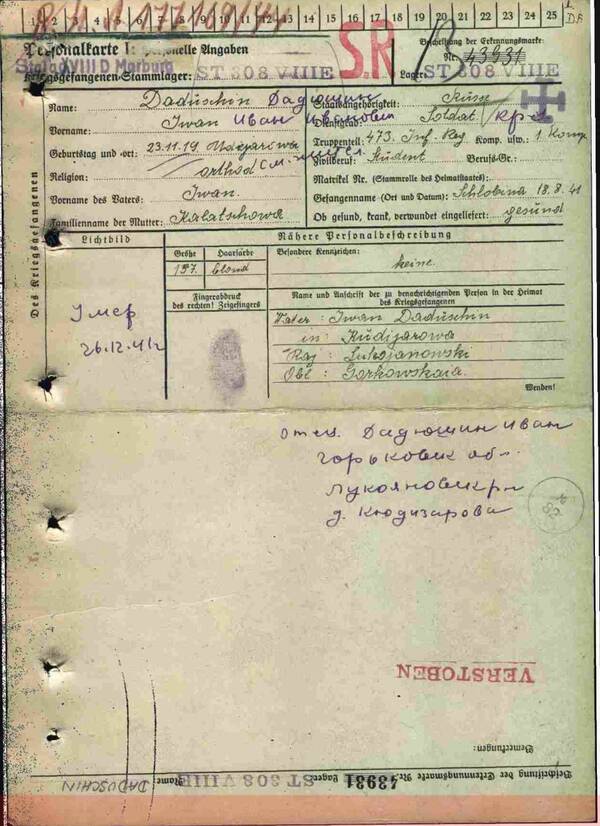 1 2 3 4 5 6 7 8 9 10 11 12 13 14 15 16 17 18 19 20 21 22 23 24 25
Personalkarte I: Personelle Angaben
Beschriftung der Erkennungsmarke
Stalag VIII D Marburg
S.R
Nr. 43931
Kriegsgefangenen-Stammlager: ST 308 VIIIE
Lager: ST 308 VIIIE
Des Kriegsgefangenen
Name: Daduschin Дадюшин
Staatsangehörigkeit: Russe
Vorname: Iwan Иван Иванович
Dienstgrad: Soldat кр-ц
Truppenteil: 473. Inf. Reg Komp. usw.: 1. Komp.
Geburtstag und -ort: 23.11.19
Zivilberuf: Student Berufs-Gr.:
Religion: orthod
Matrikel Nr. (Stammrolle des Heimatstaates):
Vorname des Vaters: Iwan
Gefangennahme (Ort und Datum): Schlobina 18.8.41
Familienname der Mutter: Kalatschowa
Ob gesund, krank, verwundet eingeliefert: gesund
Lichtbild
Nähere Personalbeschreibung
Größe Haarfarbe
Besondere Kennzeichen:
157. blond
keine
Fingerabdruck des rechten! Zeigefingers
Name und Anschrift der zu benachrichtigenden Person in der Heimat des Kriegsgefangenen
Умер
26.12.41г
Vater: Iwan Daduschin
in: Kudijarowa
Raj: Lukojanowski
Obl: Gorkowskaia
Wenden!
отец. Дадюшин Иван
Горьковск обл.
Лукояновск р-н
д. Кюдизарова
VERSTOBEN
Bemerkungen:
Beschriftung der Erkennungsmarke Nr. 43931 Lager: ST 308 VIIIE Name: DADUSCHIN